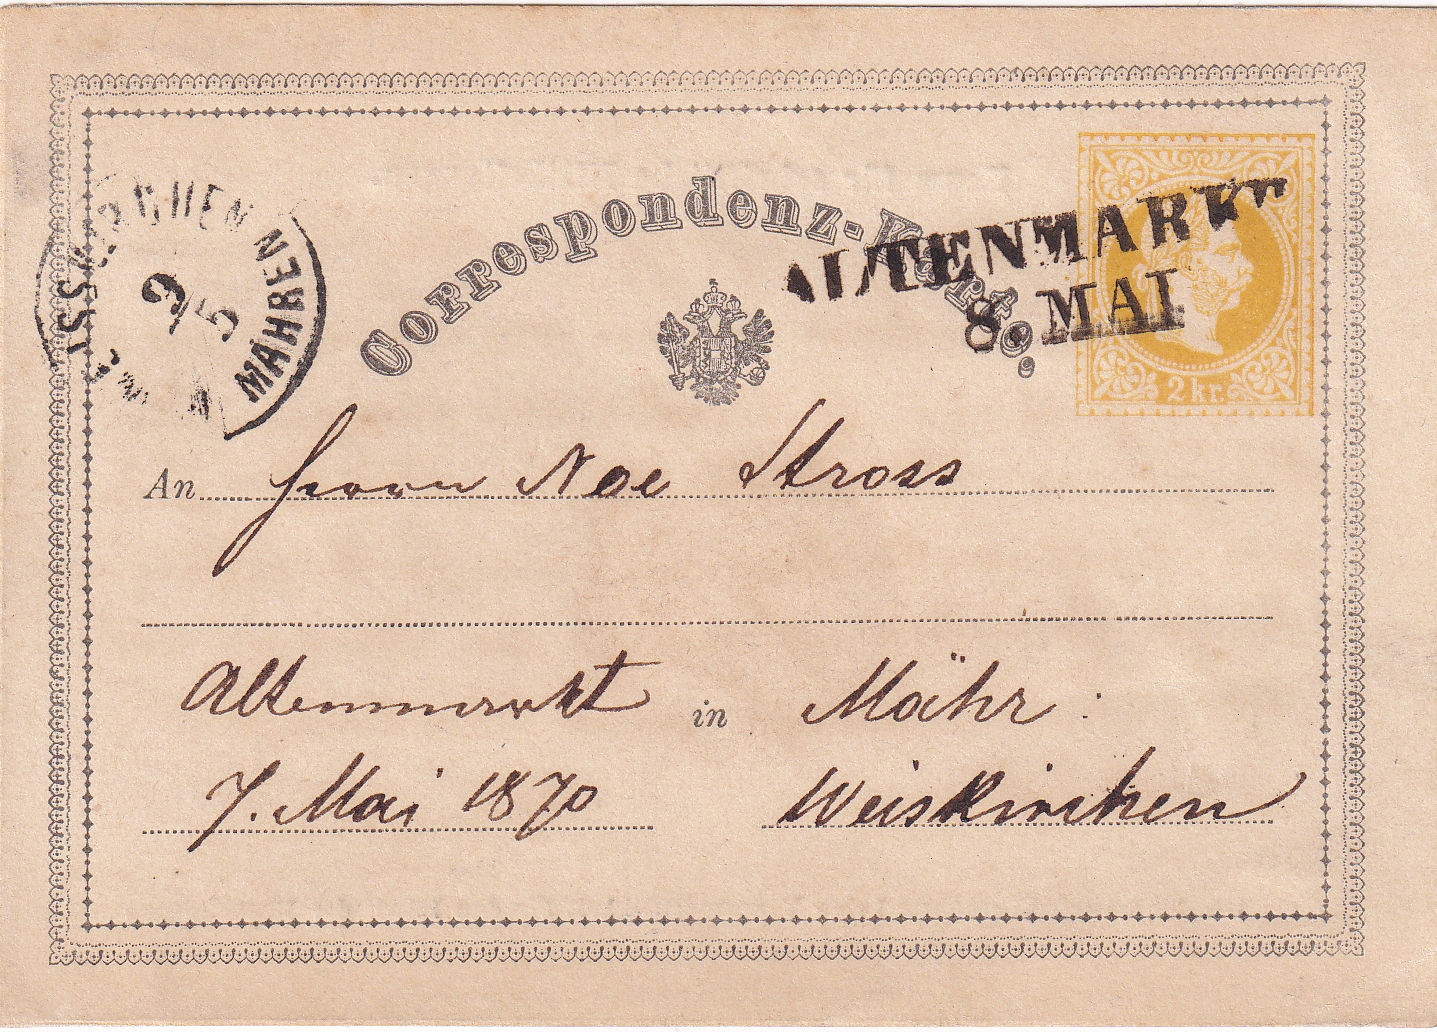 Correspondenz-Karte.
ALTENMARKT
8. MAI
2 kr.
WEISSKIRCHEN MÄHREN
9/5
An Herrn Noe Stross
Altenmarkt in Mähr.
7. Mai 1870 Weiskirchen